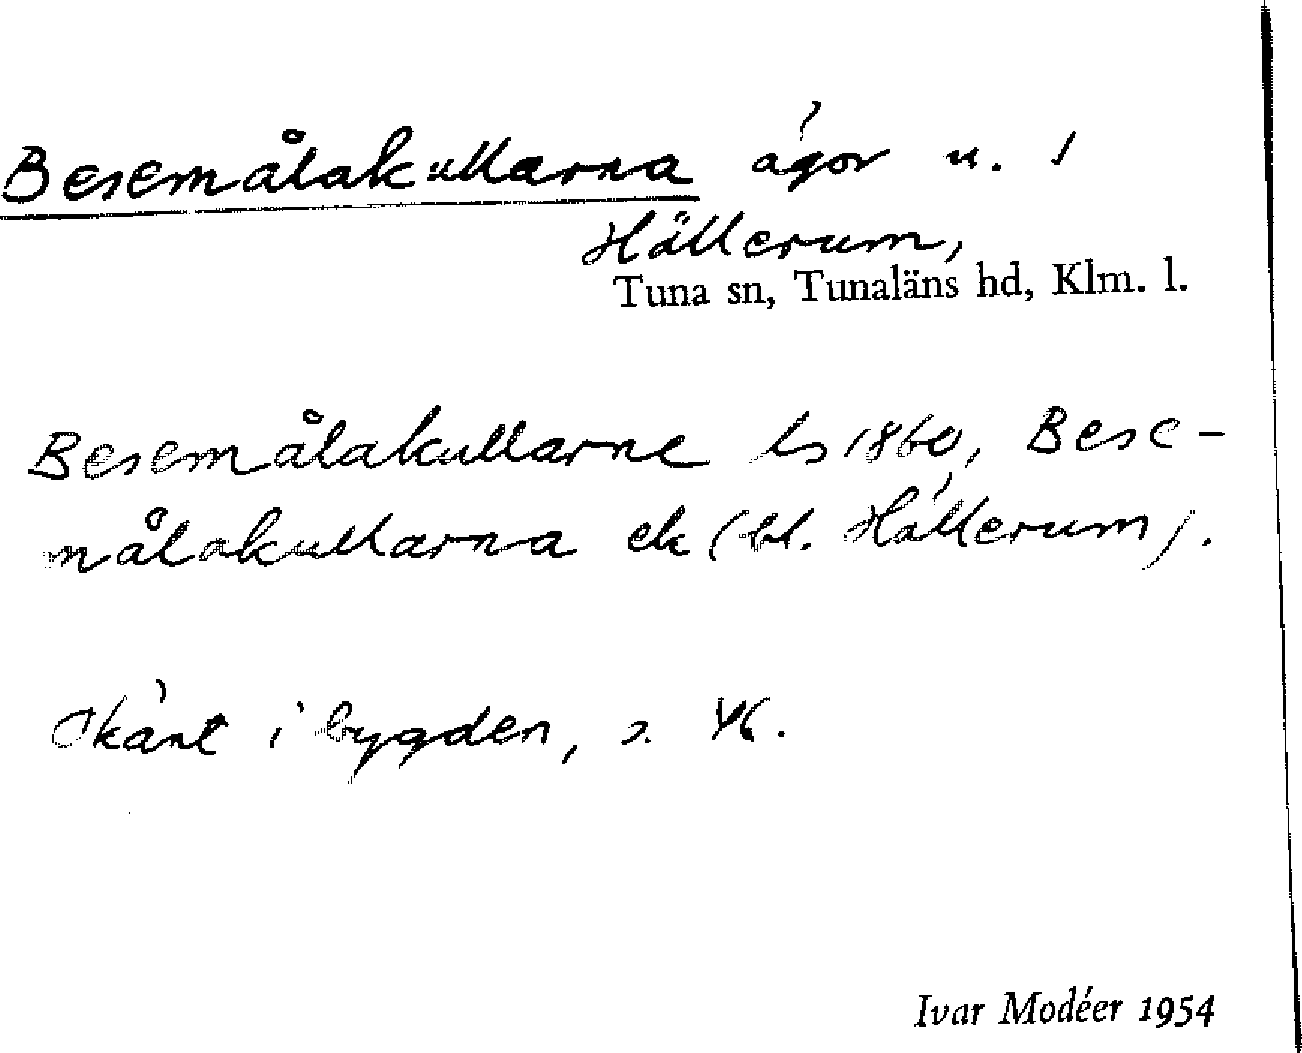 Besemålakullarna ägor u. 1
Hällerum,
Tuna sn, Tunaläns hd, Klm. l.
Besemålakullarne ls 1860, Bese-
målakullarna ek (bl. Hällerum).
Okänt i bygden, s. 46.
Ivar Modéer 1954